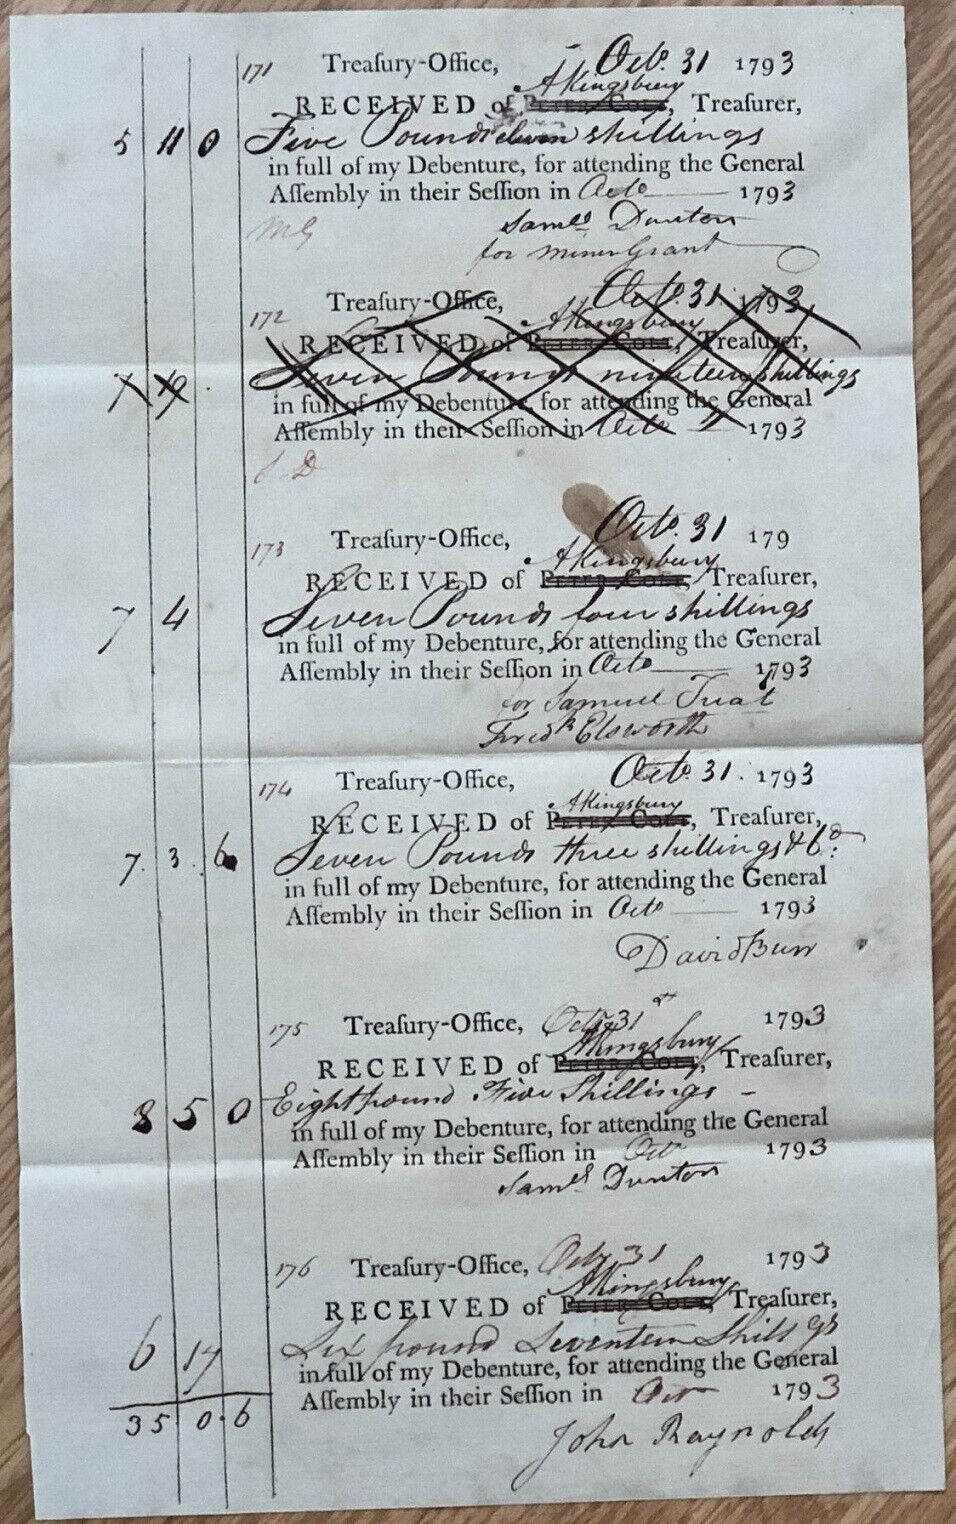 171 Treaſury-Office, Octo. 31 1793
AKingsbury
RECEIVED of PETER COLT, Treaſurer,
5 11 0 Five Pounds eleven shillings
in full of my Debenture, for attending the General
Aſſembly in their Seſſion in Octo 1793
MG Saml Dunton
for Miner Grant
172 Treaſury-Office, Octo. 31 1793
AKingsbury
RECEIVED of PETER COLT, Treaſurer,
7 19 Seven Pounds nineteen shillings
in full of my Debenture, for attending the General
Aſſembly in their Seſſion in Octo 1793
D
173 Treaſury-Office, Octo. 31 179
AKingsbury
RECEIVED of PETER COLT, Treaſurer,
7 4 Seven Pounds four shillings
in full of my Debenture, for attending the General
Aſſembly in their Seſſion in Octo 1793
for Samuel Treat
Fredk Elsworth
174 Treaſury-Office, Octo. 31. 1793
AKingsbury
RECEIVED of PETER COLT, Treaſurer,
7. 3. 6 Seven Pounds three shillings & 6d:
in full of my Debenture, for attending the General
Aſſembly in their Seſſion in Octo 1793
David Burr
175 Treaſury-Office, Octr 31st 1793
AKingsbury
RECEIVED of PETER COLT, Treaſurer,
8 5 0 Eight pound Five Shillings -
in full of my Debenture, for attending the General
Aſſembly in their Seſſion in Octr 1793
Saml Dunton
176 Treaſury-Office, Octr 31 1793
AKingsbury
RECEIVED of PETER COLT, Treaſurer,
6 17 Six pound Seventeen Shillgs
in full of my Debenture, for attending the General
Aſſembly in their Seſſion in Octr 1793
35 . 0 . 6
John Raynolds